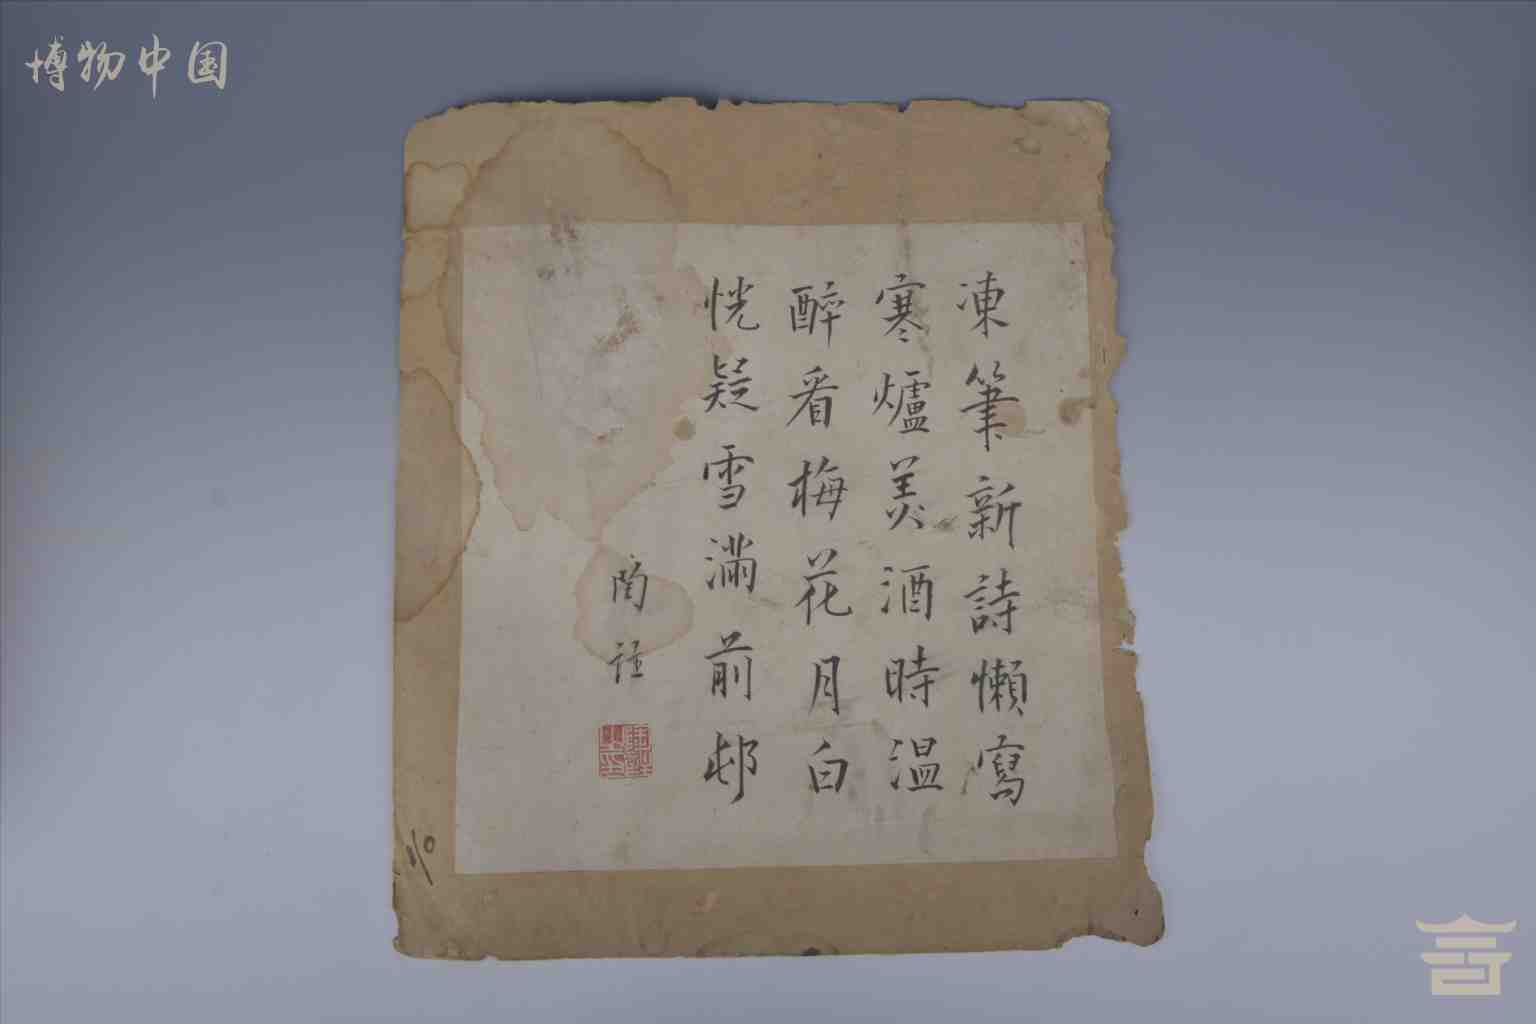 博物中国
凍筆新詩懶寫
寒爐美酒時温
醉看梅花月白
恍疑雪滿前邨